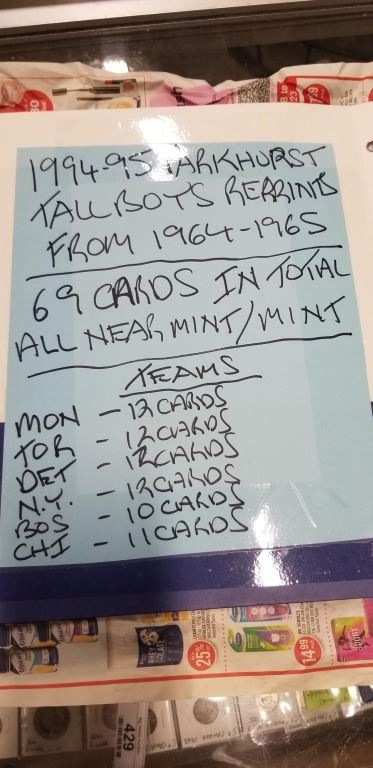 1994-95 PARKHURST
TALL BOYS REPRINTS
FROM 1964-1965
69 CARDS IN TOTAL
ALL NEAR MINT/MINT
TEAMS
MON - 12 CARDS
TOR - 12 CARDS
DET - 12 CARDS
N.Y. - 12 CARDS
BOS - 10 CARDS
CHI - 11 CARDS
25%
14.99
429